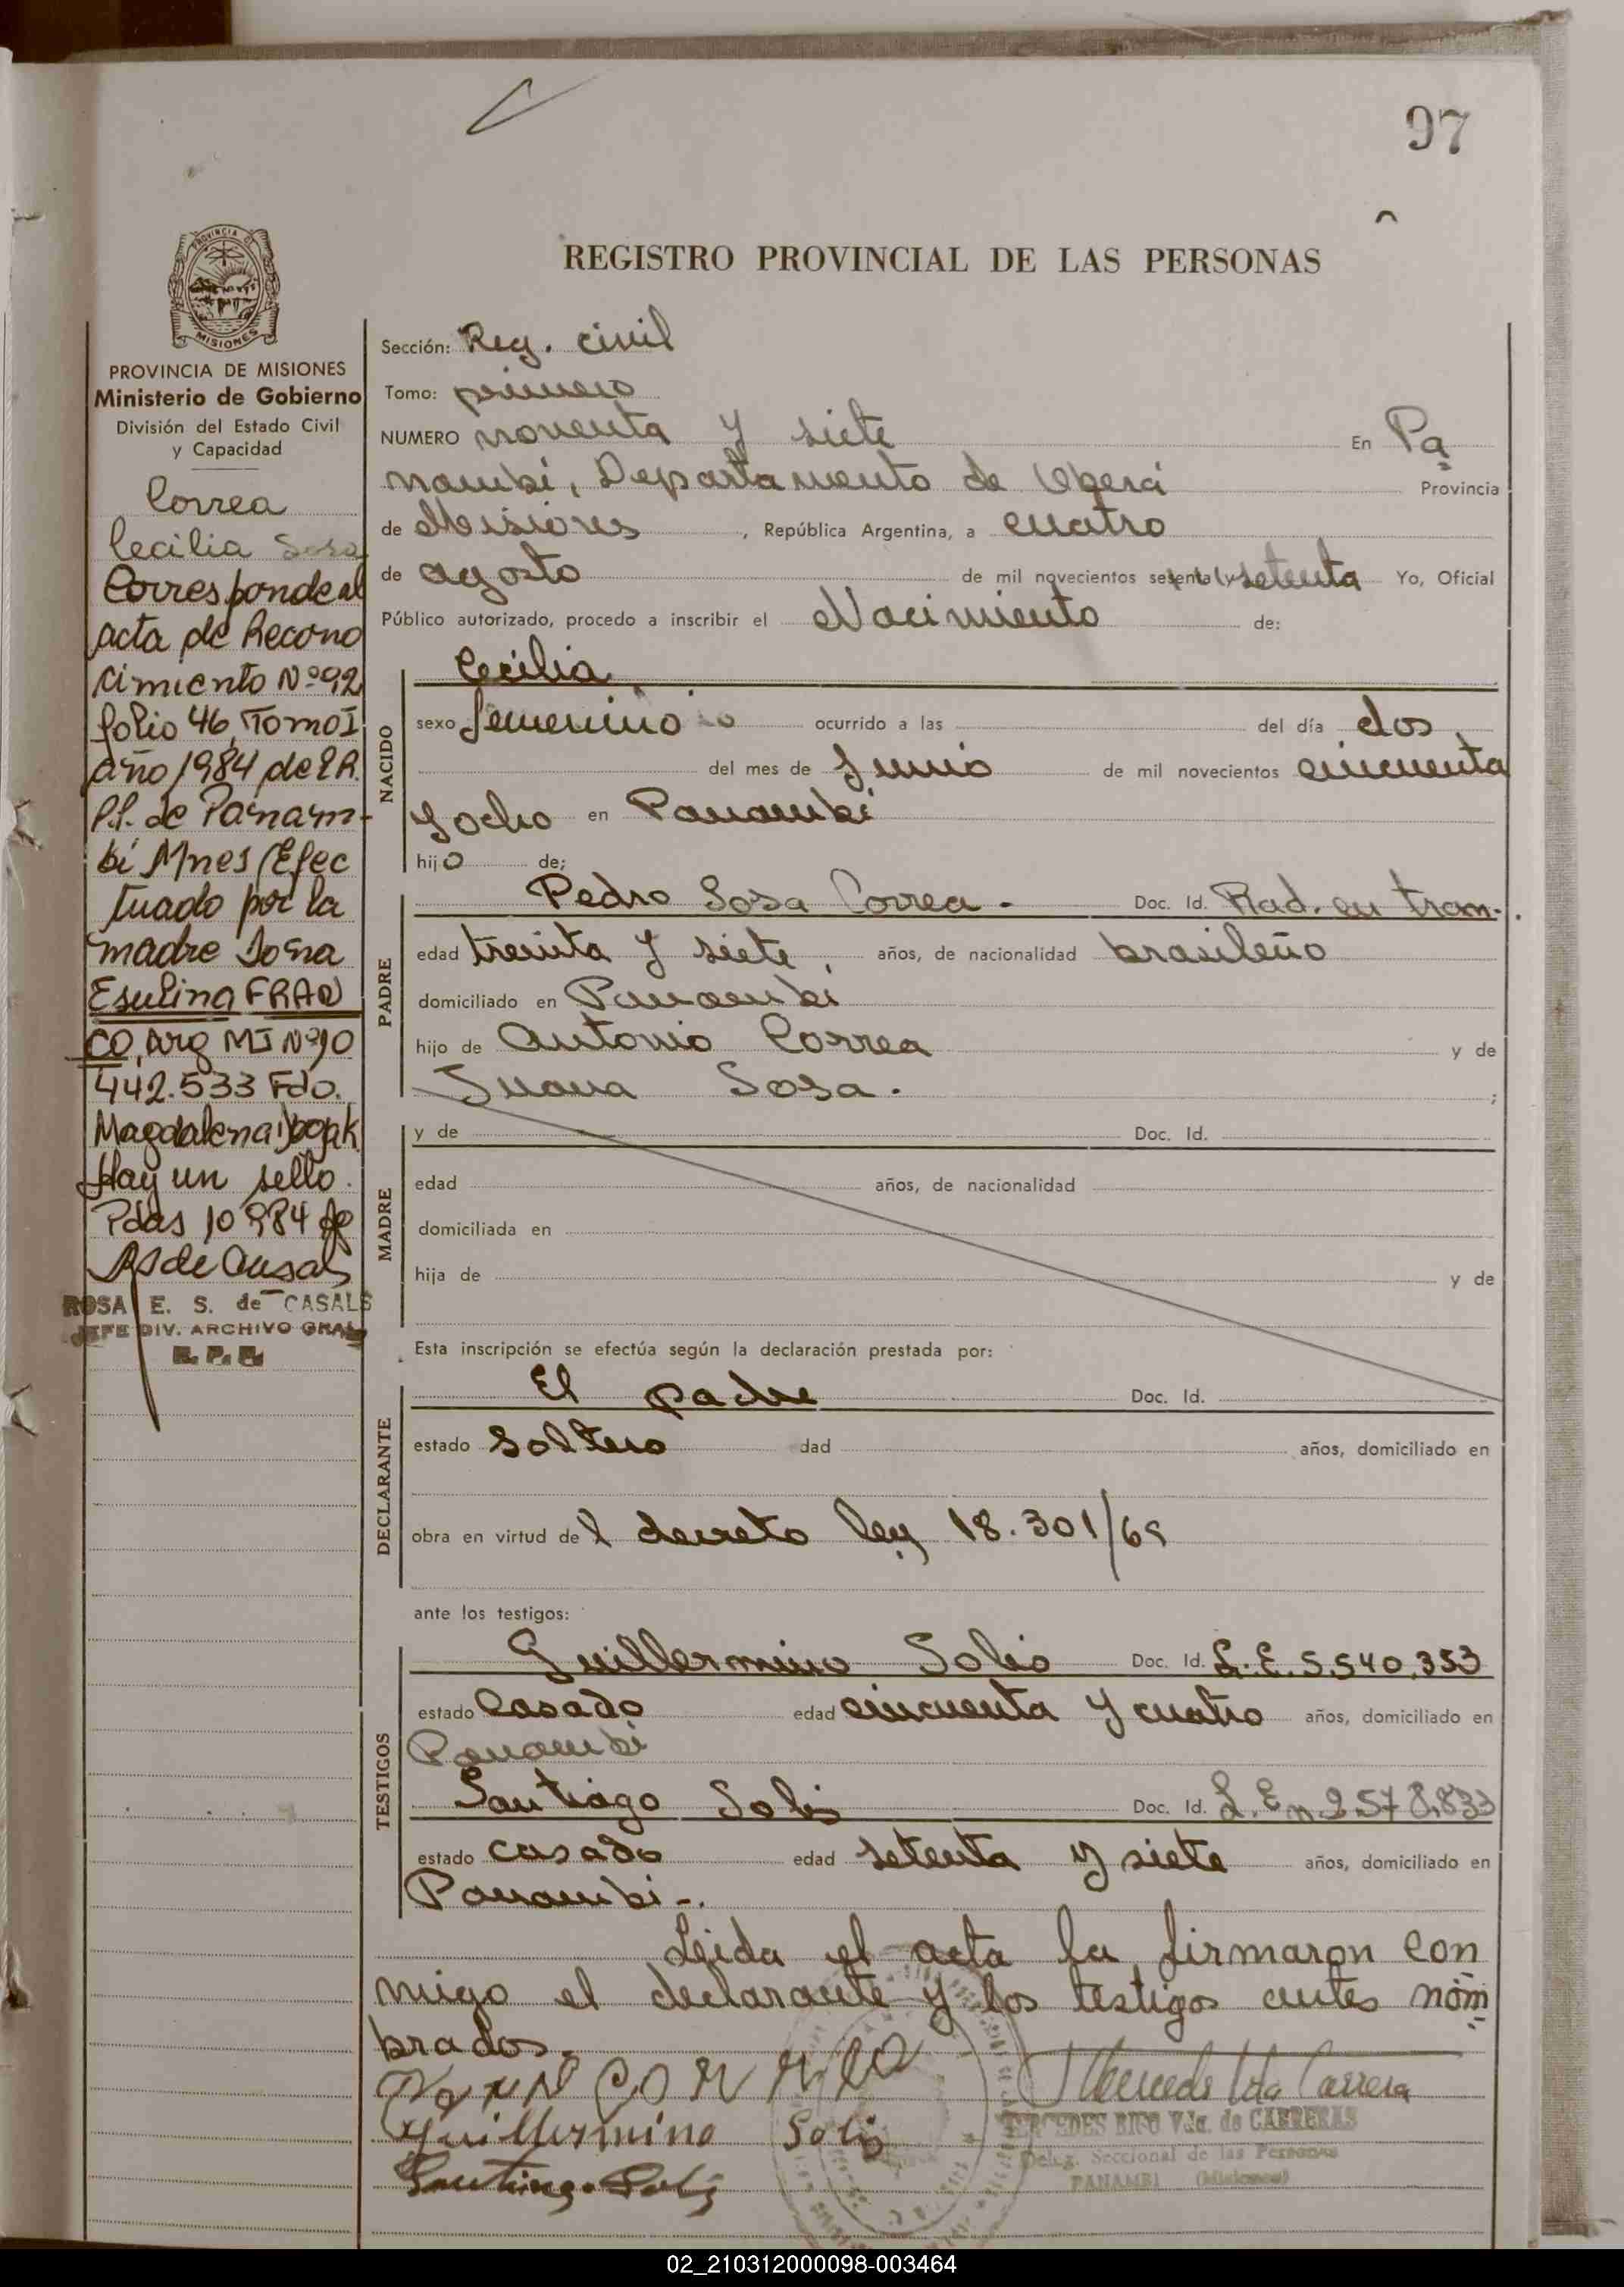 97
REGISTRO PROVINCIAL DE LAS PERSONAS
PROVINCIA DE MISIONES
PROVINCIA DE MISIONES
Ministerio de Gobierno
División del Estado Civil
y Capacidad
Correa
Cecilia Sosa
Corresponde al
acta de Recono
cimiento Nº 92
folio 46, Tomo I
año 1984 de
P.P. de Panam-
bí Mnes (Efec
tuado por la
madre
Esulina FRAN
CO, Arg MI Nº 10
442.533 Fdo.
Magdalena
Hay un sello.
Pdas 10 984
RS de Casals
ROSA E. S. de CASALS
JEFE DIV. ARCHIVO GRAL
R. P. P.
Sección: Reg. civil
Tomo: primero
NUMERO noventa y siete En Pa
nambí, Departamento de Oberá Provincia
de Misiones, República Argentina, a cuatro
de agosto de mil novecientos sesenta y setenta Yo, Oficial
Público autorizado, procedo a inscribir el Nacimiento de:
NACIDO
Cecilia
sexo femenino ocurrido a las del día dos
del mes de Junio de mil novecientos cincuenta
y ocho en Panambí
hijo de;
PADRE
Pedro Sosa Correa - Doc. Id. Rad. en tram.
edad treinta y siete, años, de nacionalidad brasileño
domiciliado en Panambí
hijo de Antonio Correa y de
Juana Sosa. ;
MADRE
y de Doc. Id.
edad años, de nacionalidad
domiciliada en
hija de y de
Esta inscripción se efectúa según la declaración prestada por:
DECLARANTE
El padre Doc. Id.
estado soltero dad años, domiciliado en
obra en virtud del decreto ley 18.301/69
ante los testigos:
TESTIGOS
Guillermino Solis Doc. Id. L.E. 5.540.353
estado Casado edad cincuenta y cuatro años, domiciliado en
Panambí
Santiago Solis Doc. Id. L.E. n 2.578.833
estado casado edad setenta y siete años, domiciliado en
Panambí-.
Leida el acta la firmaron con
migo el declarante y los testigos antes nom
brados.
Guillermino Solis
Santiago Solis
Mercedes Vda Carrera
MERCEDES RIFO Vda. de CARRERAS
Deleg. Seccional de las Personas
PANAMBI (Misiones)
02_210312000098-003464